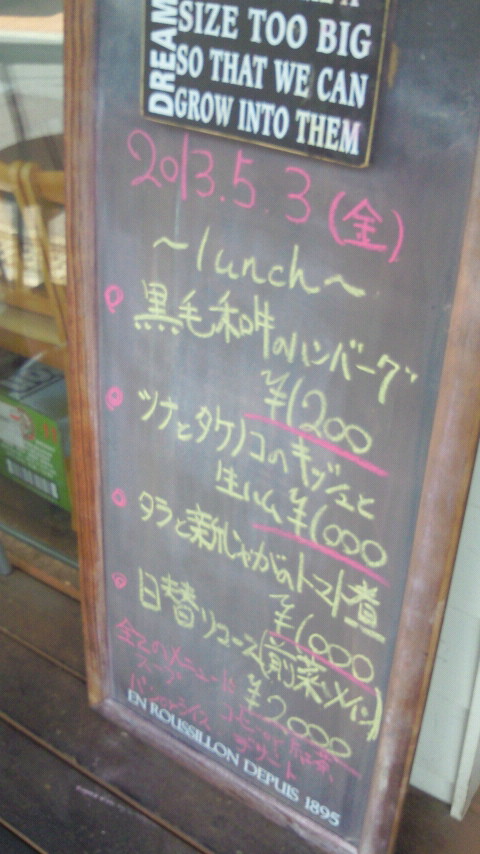 DREAM
SIZE TOO BIG
SO THAT WE CAN
GROW INTO THEM
2013.5.3(金)
~lunch~
黒毛和牛のハンバーグ
¥1200
ツナとタケノコのキッシュと
生ハム ¥1000
タラと新じゃがのトマト煮
¥1000
日替りコース(前菜・メイン)
¥2000
全てのメニューに
スープ
パン又はライス コーヒー又は紅茶
デザート
EN ROUSSILLON DEPUIS 1895